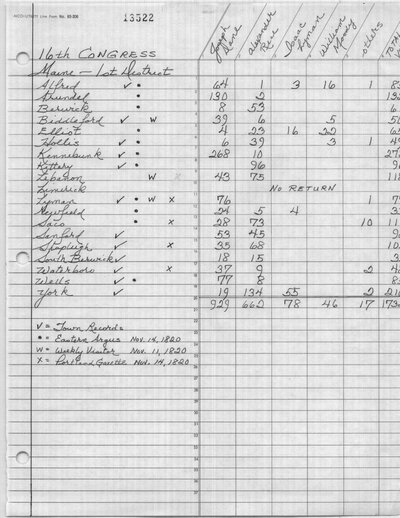 ACCO-UTILITY Line Form No. 50-206
13522
Joseph Dane
Alexander Rice
Isaac Lyman
William Moody
Others
Total
16th Congress
Maine — 1st District
Alfred ✓ • 64 11 3 16 1
Arundel • 130 2
Berwick • 8 53
Biddeford ✓ W 39 6 5
Elliot • 4 23 16 22
Hollis ✓ • 6 39 3 1
Kennebunk ✓ • 268 10
Kittery ✓ 96
Lebanon W X 43 75
Limerick No RETURN
Lyman ✓ • W X 76 1
Newfield • 24 5 4
Saco • X 28 73 10
Sanford ✓ 53 45
Shapleigh ✓ X 35 68
South Berwick ✓ 18 15
Waterboro ✓ X 37 9 2
Wells ✓ • 77 8
York ✓ 19 134 55 2
929 662 78 46 17 1732
✓ = Town Records
• = Eastern Argus Nov. 14, 1820
W = Weekly Visitor Nov. 11, 1820
X = Portland Gazette Nov. 14, 1820